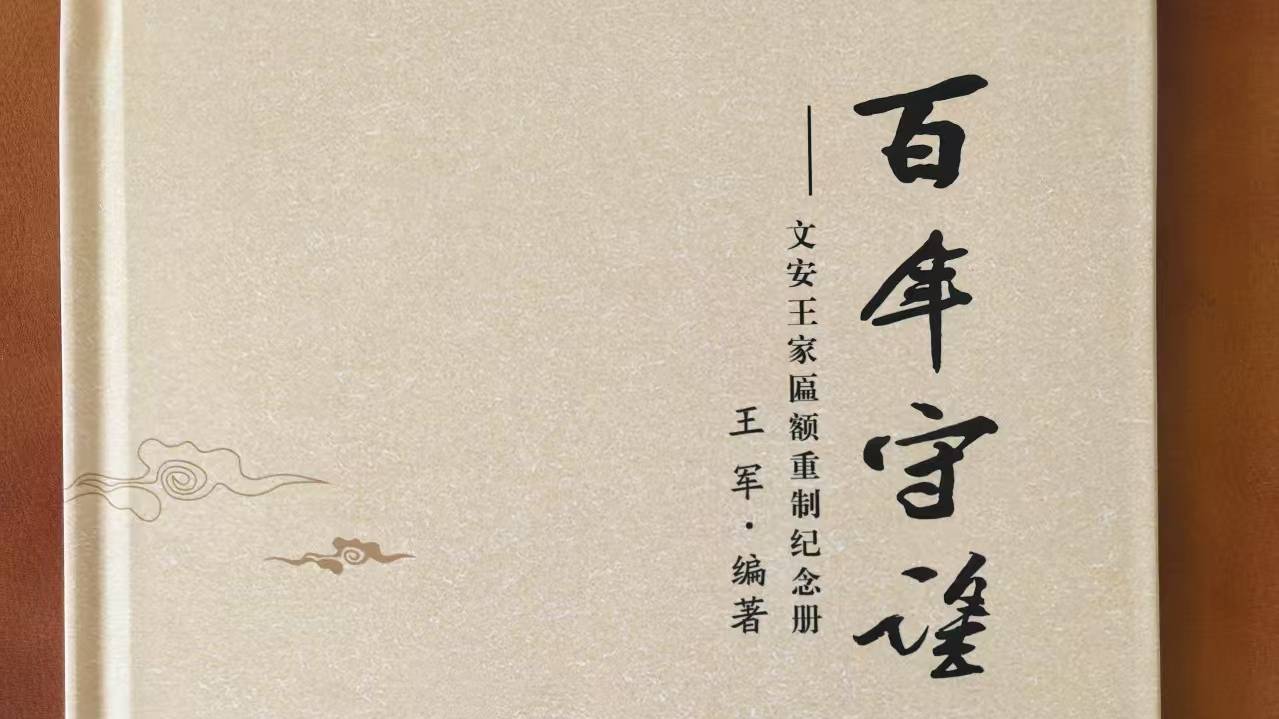 百年守
——文安王家匾额重制纪念册
王军·编著